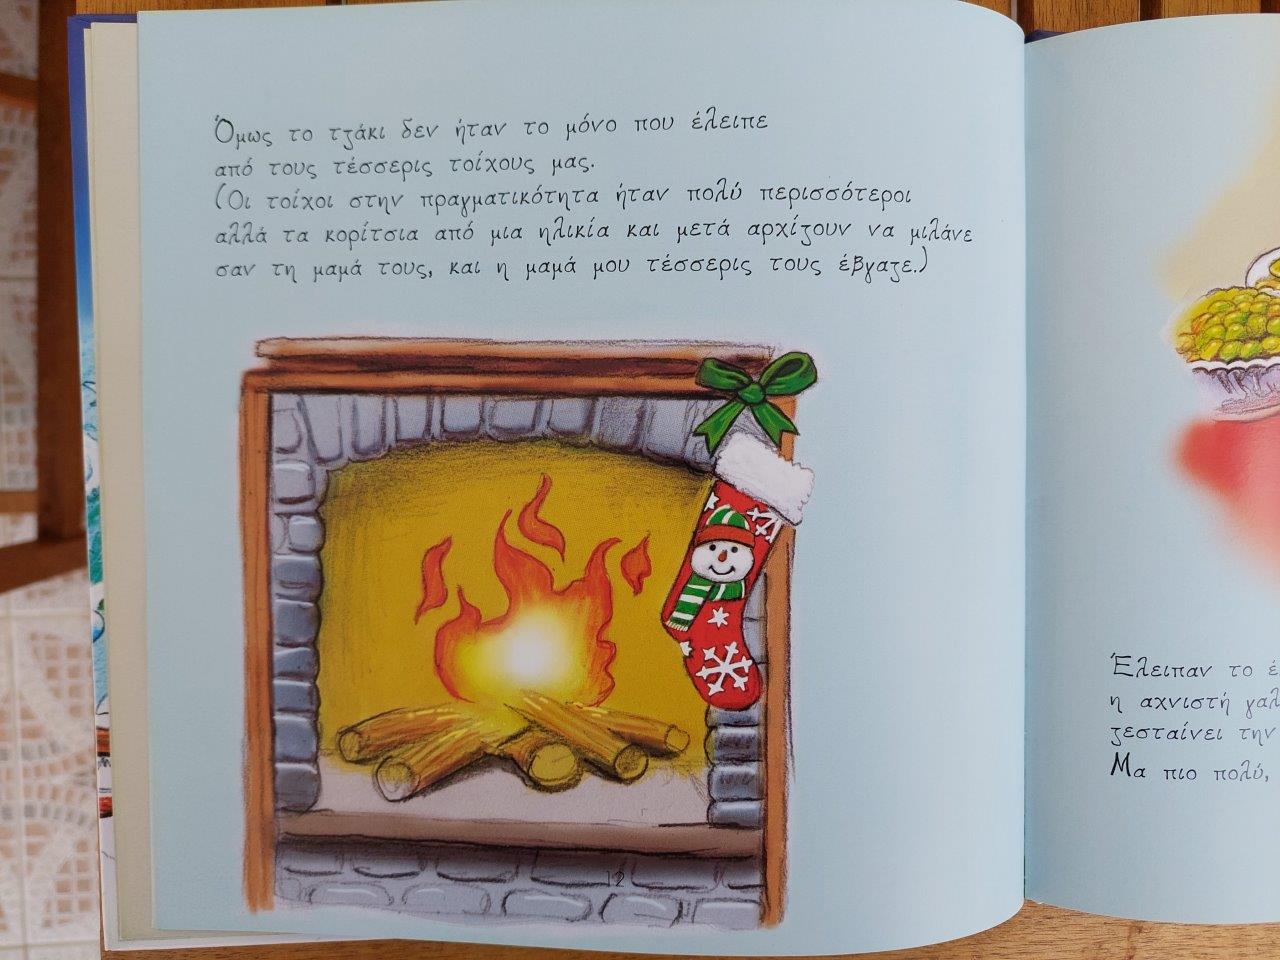 Όμως το τζάκι δεν ήταν το μόνο που έλειπε
από τους τέσσερις τοίχους μας.
(Οι τοίχοι στην πραγματικότητα ήταν πολύ περισσότεροι
αλλά τα κορίτσια από μια ηλικία και μετά αρχίζουν να μιλάνε
σαν τη μαμά τους, και η μαμά μου τέσσερις τους έβγαζε.)
12
Έλειπαν το
η αχνιστή
ζεσταίνει την
Μα πιο πολύ,